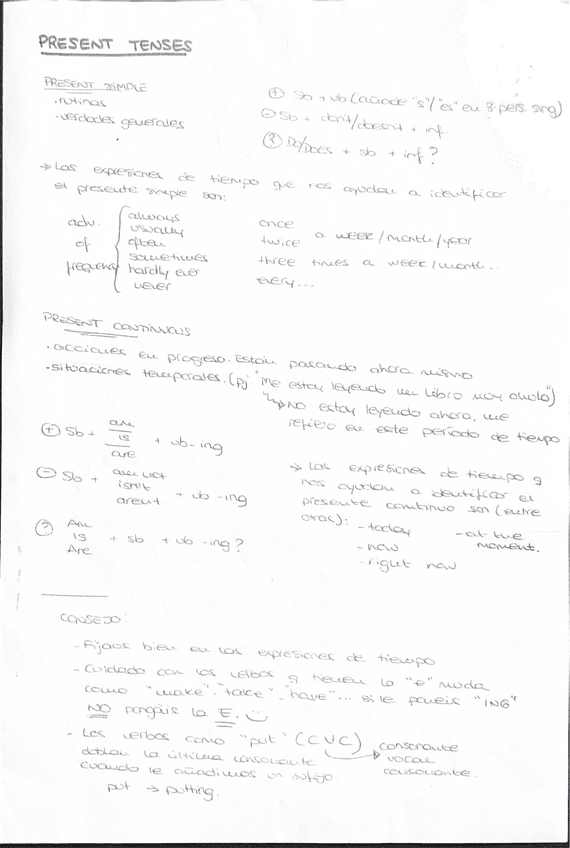 PRESENT TENSES
PRESENT SIMPLE
· rutinas
· verdades generales
(+) Sb + vb (añade "s"/"es" en 3ª pers. sing)
(-) Sb + don't/doesn't + inf.
(?) Do/Does + sb + inf?
→ Las expresiones de tiempo que nos ayudan a identificar
el presente simple son:
adv.
of
frequency
always
usually
often
sometimes
hardly ever
never
once
twice a week/month/year
three times a week/month..
every...
PRESENT CONTINUOUS
· acciones en progreso. Están pasando ahora mismo
· situaciones temporales. (Pj "Me estoy leyendo un libro muy chulo")
↳ No estoy leyendo ahora, me
refiero en este período de tiempo
(+) Sb + am
is
are + vb-ing
(-) Sb + am not
isn't
aren't + vb-ing
(?) Am
Is
Are + sb + vb-ing?
→ Las expresiones de tiempo q
nos ayudan a identificar el
presente continuo son (entre
otras): - today - at the
- now moment.
- right now
CONSEJO:
- Fijaos bien en las expresiones de tiempo
- Cuidado con los verbos q tienen la "e" muda
como "make". "take". "have"... si le ponéis "ING"
NO pongáis la E.
- Los verbos como "put" (CVC) → consonante
doblan la última consonante vocal
cuando le añadimos un sufijo. consonante.
put → putting.